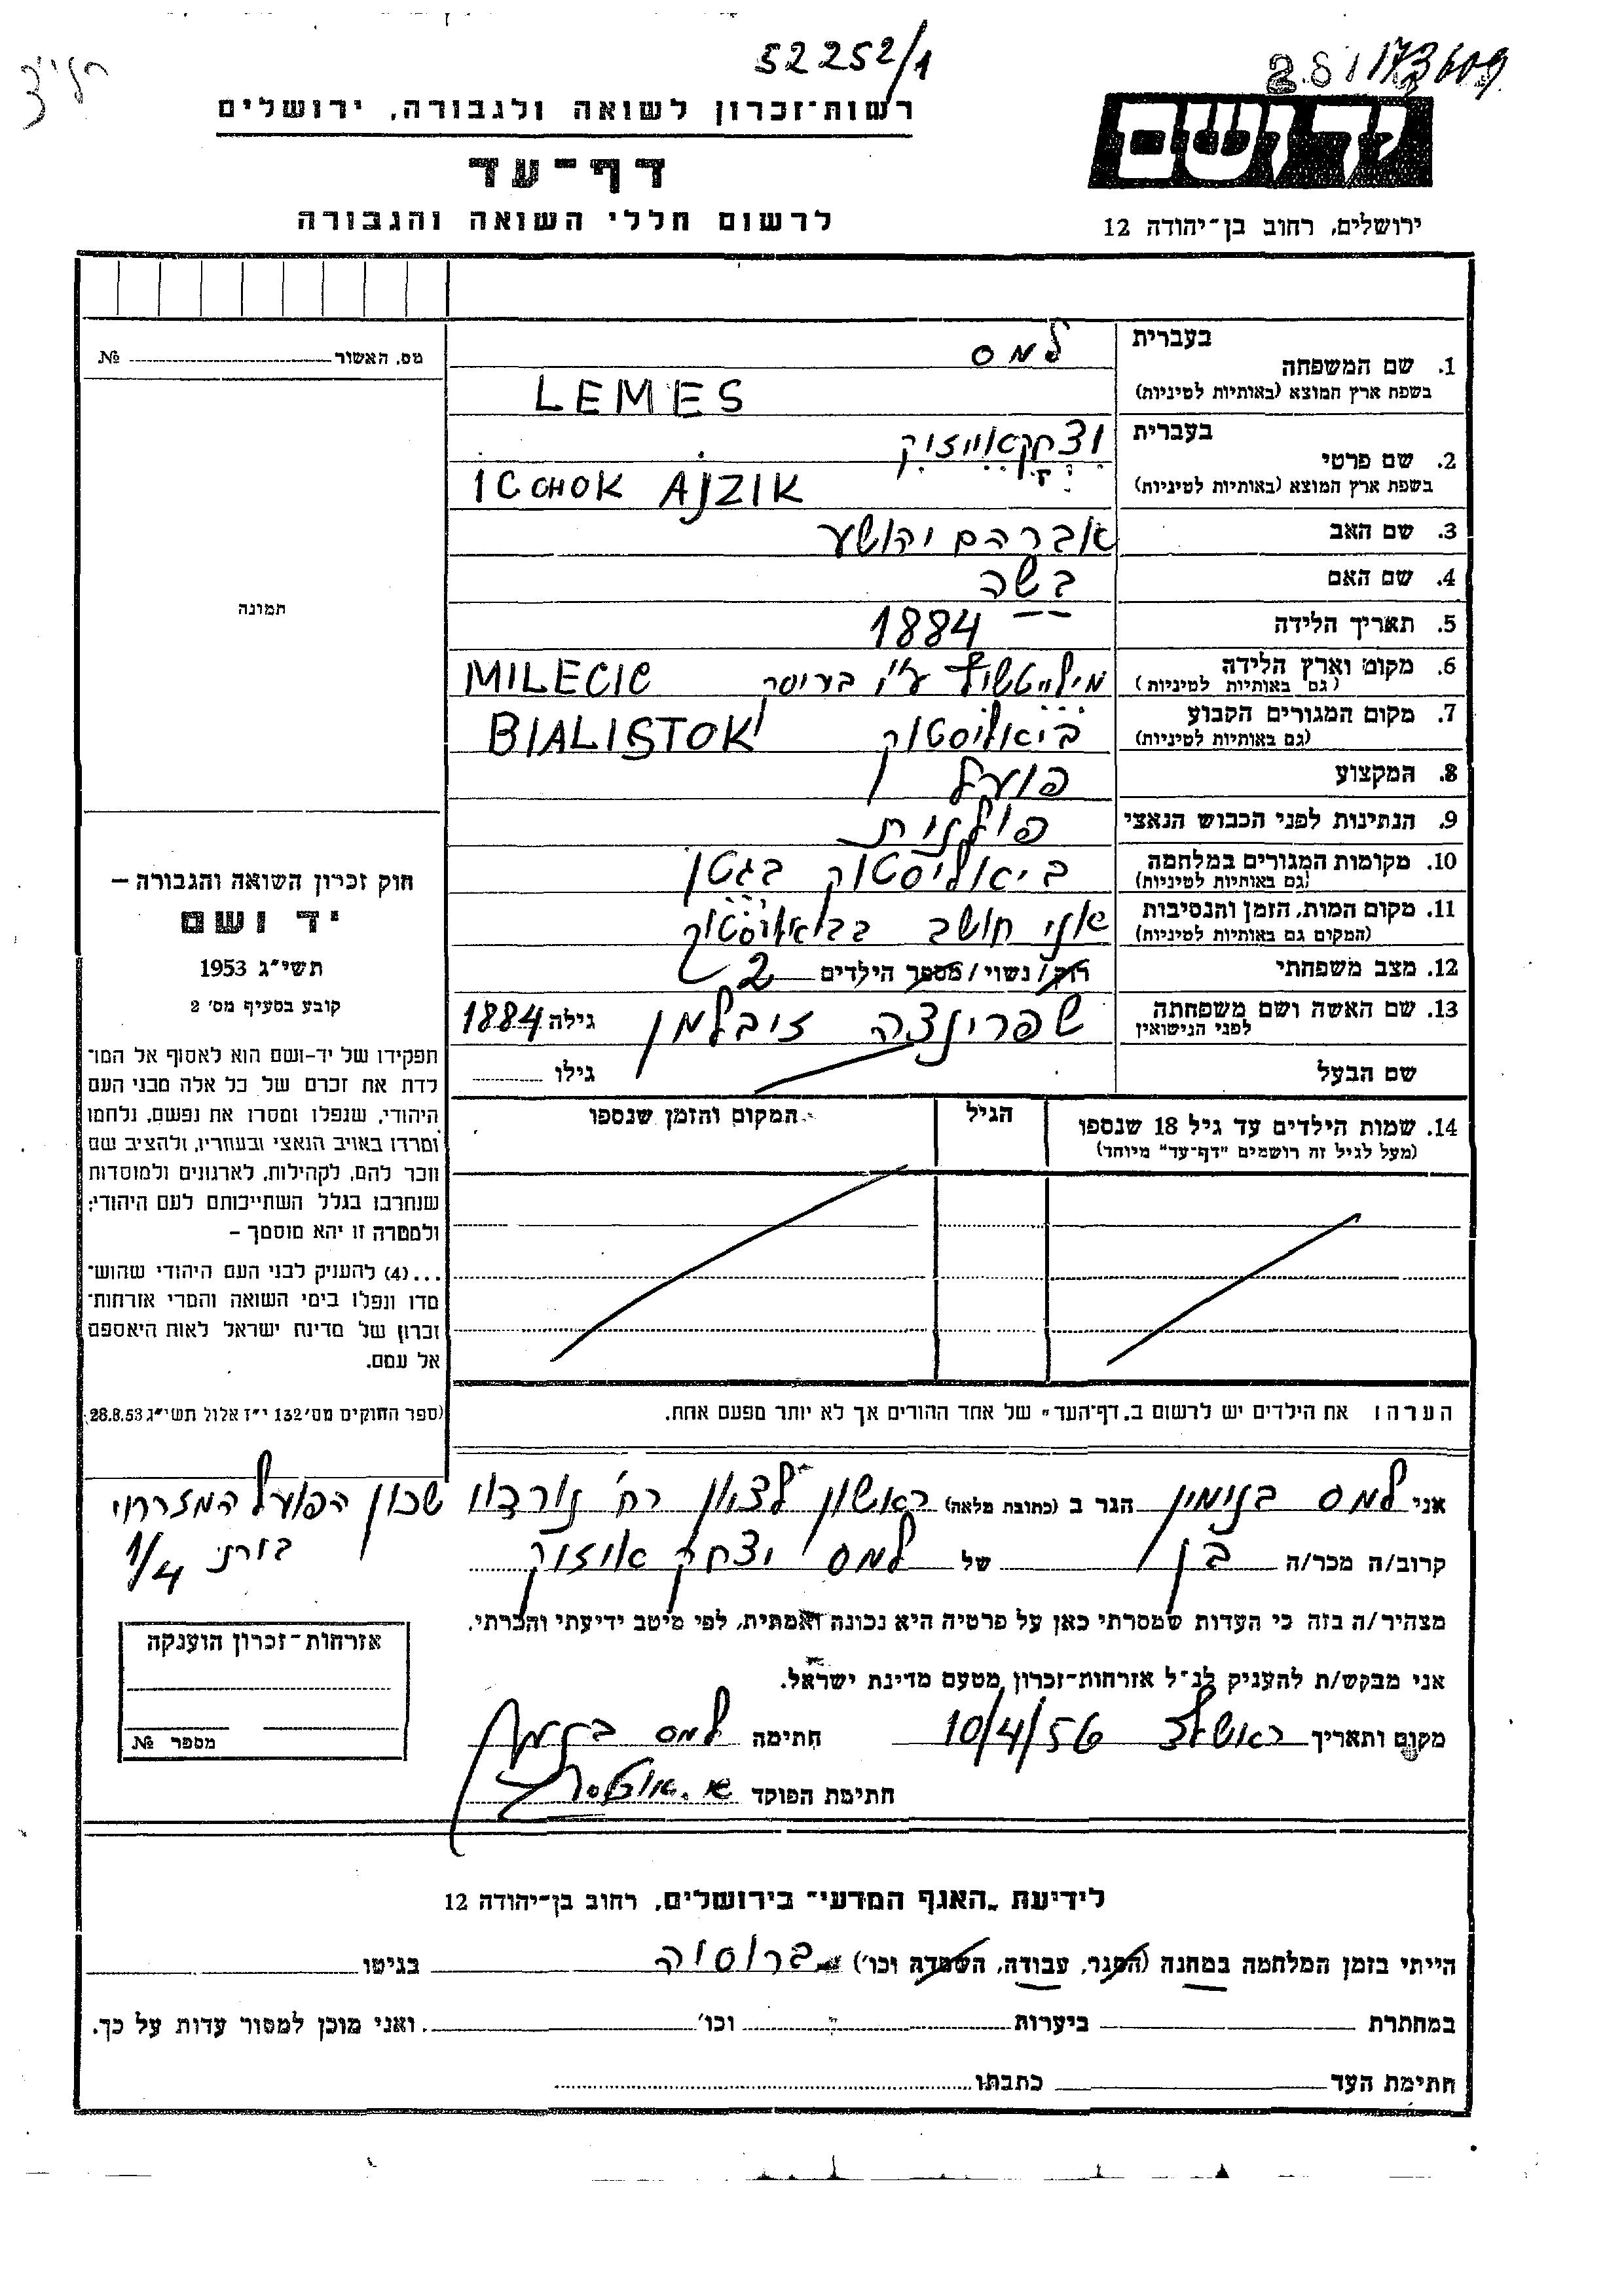 52252/1
רשות-זכרון לשואה ולגבורה, ירושלים
דף-עד
לרשום חללי השואה והגבורה
יד ושם
ירושלים, רחוב בן-יהודה 12
מס. האשור № 
תמונה
1. שם המשפחה בעברית למס
בשפת ארץ המוצא (באותיות לטיניות) LEMES
2. שם פרטי בעברית יצחק אייזיק
בשפת ארץ המוצא (באותיות לטיניות) ICCHOK AJZIK
3. שם האב אברהם יהושע
4. שם האם בשה
5. תאריך הלידה 1884
6. מקום וארץ הלידה (גם באותיות לטיניות) ע"י בריסק MILECIC
7. מקום המגורים הקבוע (גם באותיות לטיניות) ביאליסטוק BIALISTOK
8. המקצוע פועל
9. הנתינות לפני הכבוש הנאצי פולנית
10. מקומות המגורים במלחמה (גם באותיות לטיניות) ביאליסטוק בגטו
11. מקום המות, הזמן והנסיבות (המקום גם באותיות לטיניות) אני חושב בביאליסטוק
12. מצב משפחתי רווק/נשוי/מספר הילדים 2
13. שם האשה ושם משפחתה לפני הנישואין שפרינצה זיבלמן גילה 1884
שם הבעל גילו
14. שמות הילדים עד גיל 18 שנספו הגיל המקום והזמן שנספו
(מעל לגיל זה רושמים "דף-עד" מיוחד)
הערה: את הילדים יש לרשום ב"דף-העד" של אחד ההורים אך לא יותר מפעם אחת.
חוק זכרון השואה והגבורה –
יד ושם
תשי"ג 1953
קובע בסעיף מס' 2
תפקידו של יד-ושם הוא לאסוף אל המו-
לדת את זכרם של כל אלה מבני העם
היהודי, שנפלו ומסרו את נפשם, נלחמו
ומרדו באויב הנאצי ובעוזריו, ולהציב שם
וזכר להם, לקהילות, לארגונים ולמוסדות
שנחרבו בגלל השתייכותם לעם היהודי;
ולמטרה זו יהא מוסמך –
...(4) להעניק לבני העם היהודי שהוש-
מדו ונפלו בימי השואה והמרי אזרחות-
זכרון של מדינת ישראל לאות היאספם
אל עמם.
(ספר החוקים מס' 132 י"ז אלול תשי"ג 28.8.53
אני למס בנימין הגר ב (כתובת מלאה) ראשון לציון רח' נורדוי שכון הפועל המזרחי
1/4
קרוב/ה מכר/ה בן של למס יצחק אייזיק
מצהיר/ה בזה כי העדות שמסרתי כאן על פרטיה היא נכונה ואמתית, לפי מיטב ידיעתי והכרתי.
אני מבקש/ת להעניק לנ"ל אזרחות-זכרון מטעם מדינת ישראל.
מקום ותאריך ראשל"צ 10/4/56 חתימה למס בנימין
חתימת הפוקד
אזרחות-זכרון הוענקה
מספר №
לידיעת "האגף המדעי" בירושלים, רחוב בן-יהודה 12
הייתי בזמן המלחמה במחנה (הסגר, עבודה, השמדה וכו') ברוסיה בגיטו
במחתרת ביערות וכו' ואני מוכן למסור עדות על כך.
חתימת העד כתבתו